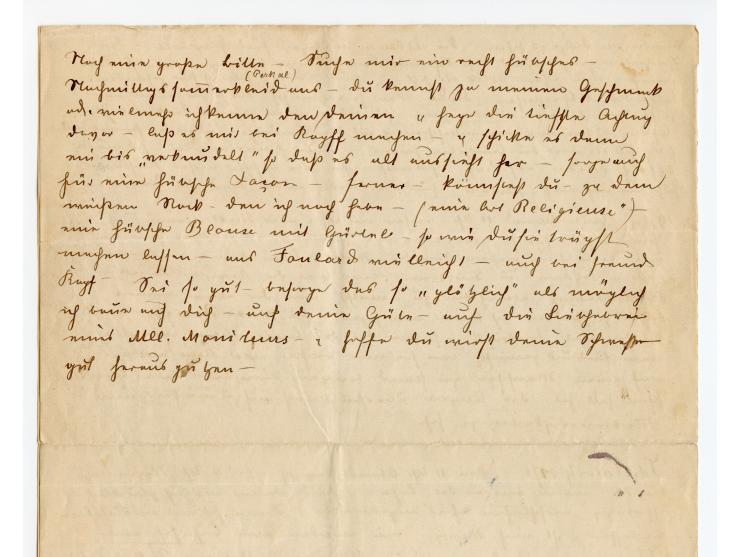 Noch eine große Bitte – Suche mir ein recht hübsches –
(Perkal)
Nachmittagssommerkleid aus – du kennst ja meinen Geschmack
od. vielmehr ich kenne den deinen u hege die tiefste Achtung
davor – laß es mir bei Kopff machen – u schicke es dann
ein bis „verknudelt" so daß es alt aussieht her – sorge auch
für eine hübsche Façon – ferner – könntest du – zu dem
weißen Rock – den ich noch habe – (eine Art Religieuse") –
eine hübsche Blouse mit Gürtel – so wie du sie trägst
machen lassen – aus Foulard vielleicht – auch bei Freund
Kopf – Sei so gut – besorge das so „plötzlich" als möglich
ich baue auf dich – auf deine Güte – auf die Liebhaberei
eines Mll. Moniteurs – u hoffe du wirst deine Schwester
gut herausputzen –